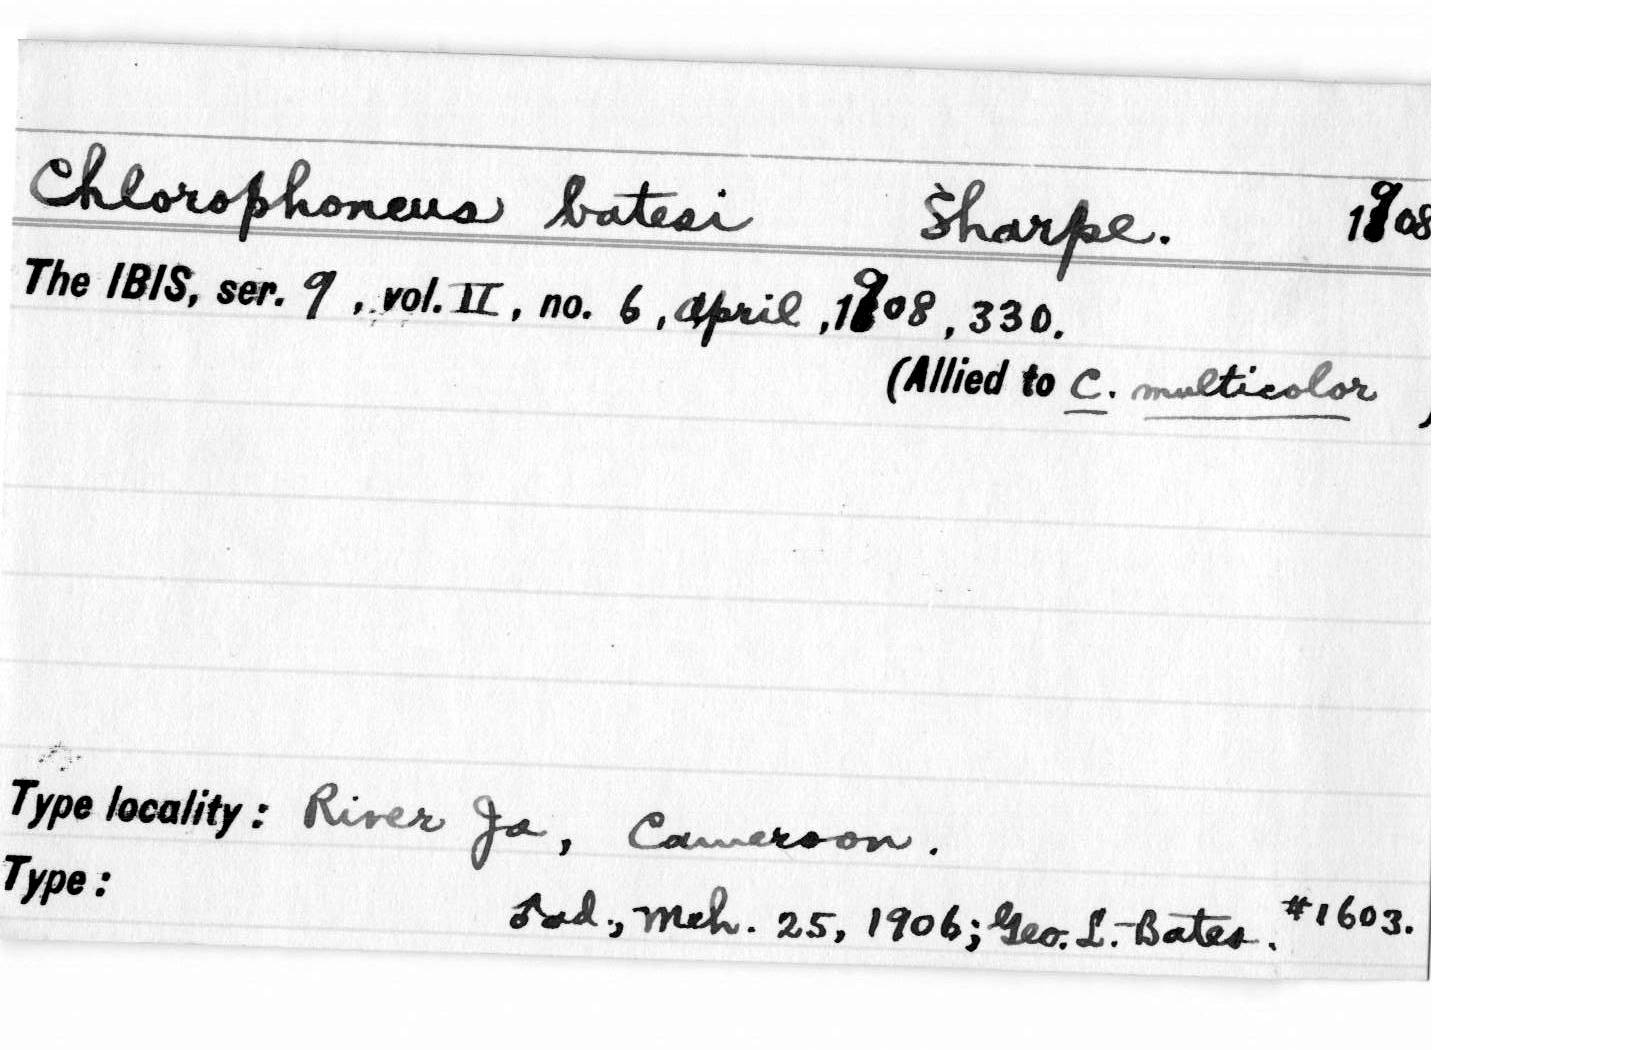 Chlorophoneus batesi Sharpe. 1908
The IBIS, ser. 9, vol. II, no. 6, April, 1908, 330.
(Allied to C. multicolor )
Type locality: River Ja, Cameroon.
Type:
♂ad., Mch. 25, 1906; Geo. L. Bates. #1603.